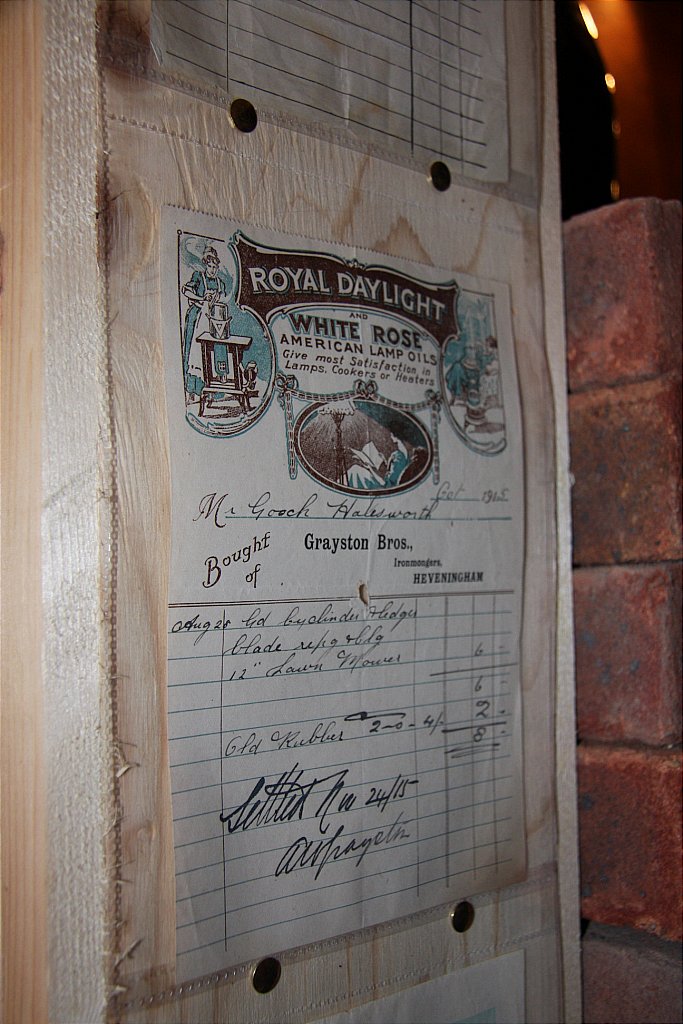 ROYAL DAYLIGHT
AND
WHITE ROSE
AMERICAN LAMP OILS
Give most Satisfaction in
Lamps, Cookers or Heaters
Oct 1915
Mr Gooch Halesworth
Bought of
Grayston Bros.,
Ironmongers,
HEVENINGHAM
Aug 25 Gd cylinder & ledger
blade repg & bdg
12" Lawn Mower 6 -
6 -
Old Rubber 2-0-4/- 2 -
8 -
Settled Nov 24/15